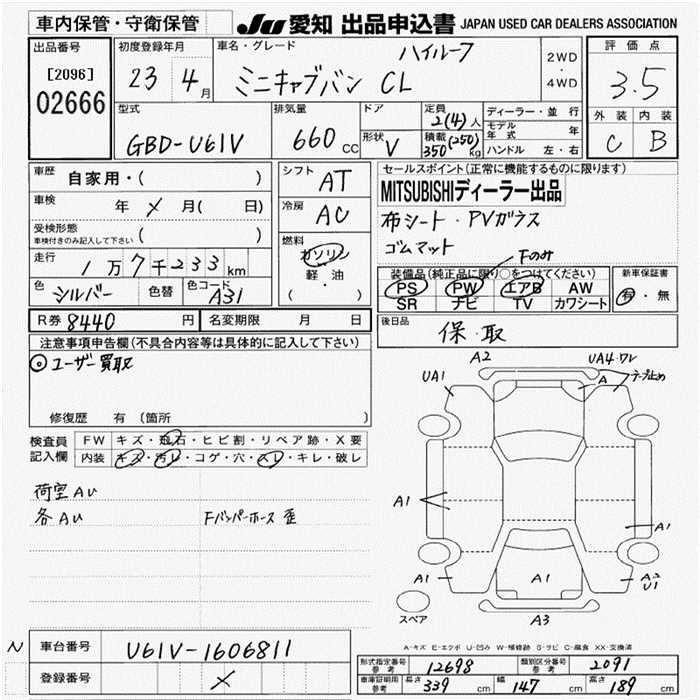 車内保管・守衛保管
JU 愛知 出品申込書 JAPAN USED CAR DEALERS ASSOCIATION
出品番号
[2096]
02666
初度登録年月
23 4月
車名・グレード
ハイルーフ
ミニキャブバン CL
2WD
・
4WD
評価点
3.5
外装 内装
C B
型式
GBD-U61V
排気量
660 cc
ドア
形状 V
定員
2(4)人
積載 (250)
350 kg
ディーラー・並行
モデル年式 年
ハンドル 左・右
車歴
自家用・( )
車検
年 × 月( 日)
受検形態
車検付きのみ記入して下さい ( )
走行
1万7千233km
色 シルバー 色替 色コード A31
シフト AT
冷房 AC
燃料
ガソリン
軽・油
( ・ )
セールスポイント(正常に機能するものに限ります)
MITSUBISHIディーラー出品
布シート・PVガラス
ゴムマット
Fのみ
装備品(純正品に限り○をつけてください)
PS PW エアB AW
SR ナビ TV カワシート
新車保証書
有・無
R券 8440 円 名変期限 月 日
後日品
保・取
注意事項申告欄(不具合内容等は具体的に記入して下さい)
◎ユーザー買取
修復歴 有(箇所 )
検査員
記入欄
FW キズ・飛石・ヒビ割・リペア跡・X要
内装 キズ・汚レ・コゲ・穴・スレ・キレ・破レ
荷室AU
各AU Fバンパーホース 歪
A2
UA4・ワレ
UA1
A
テープ止め
A1
A1
A1
A1
A2
U1
スペア
A3
A-キズ E-エクボ U-凹み W-補修跡 S-サビ C-腐食 XX-交換済
N
車台番号 U61V-1606811
登録番号 ×
形式指定番号
参考 12698
類別区分番号
参考 2091
車庫証明用
参考
長さ 339 cm 幅 147 cm 高さ 189 cm